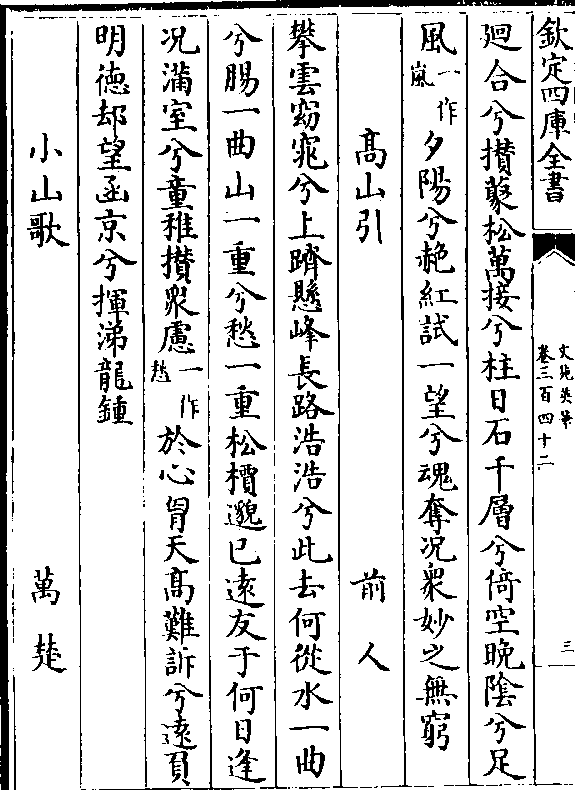 欽定四庫全書
文苑英華
卷三百四十二
三
廻合兮攢蔂松萬接兮柱日石千層兮倚空晚陰兮足
風一作嵐夕陽兮赩紅試一望兮魂奪況衆妙之無窮
髙山引 前人
攀雲窈窕兮上躋懸峰長路浩浩兮此去何從水一曲
兮腸一曲山一重兮愁一重松檟邈已遠友于何日逢
况滿室兮童稚攢衆慮一作愁於心胷天髙難訴兮遠負
明徳却望函京兮揮涕龍鍾
小山歌 萬楚